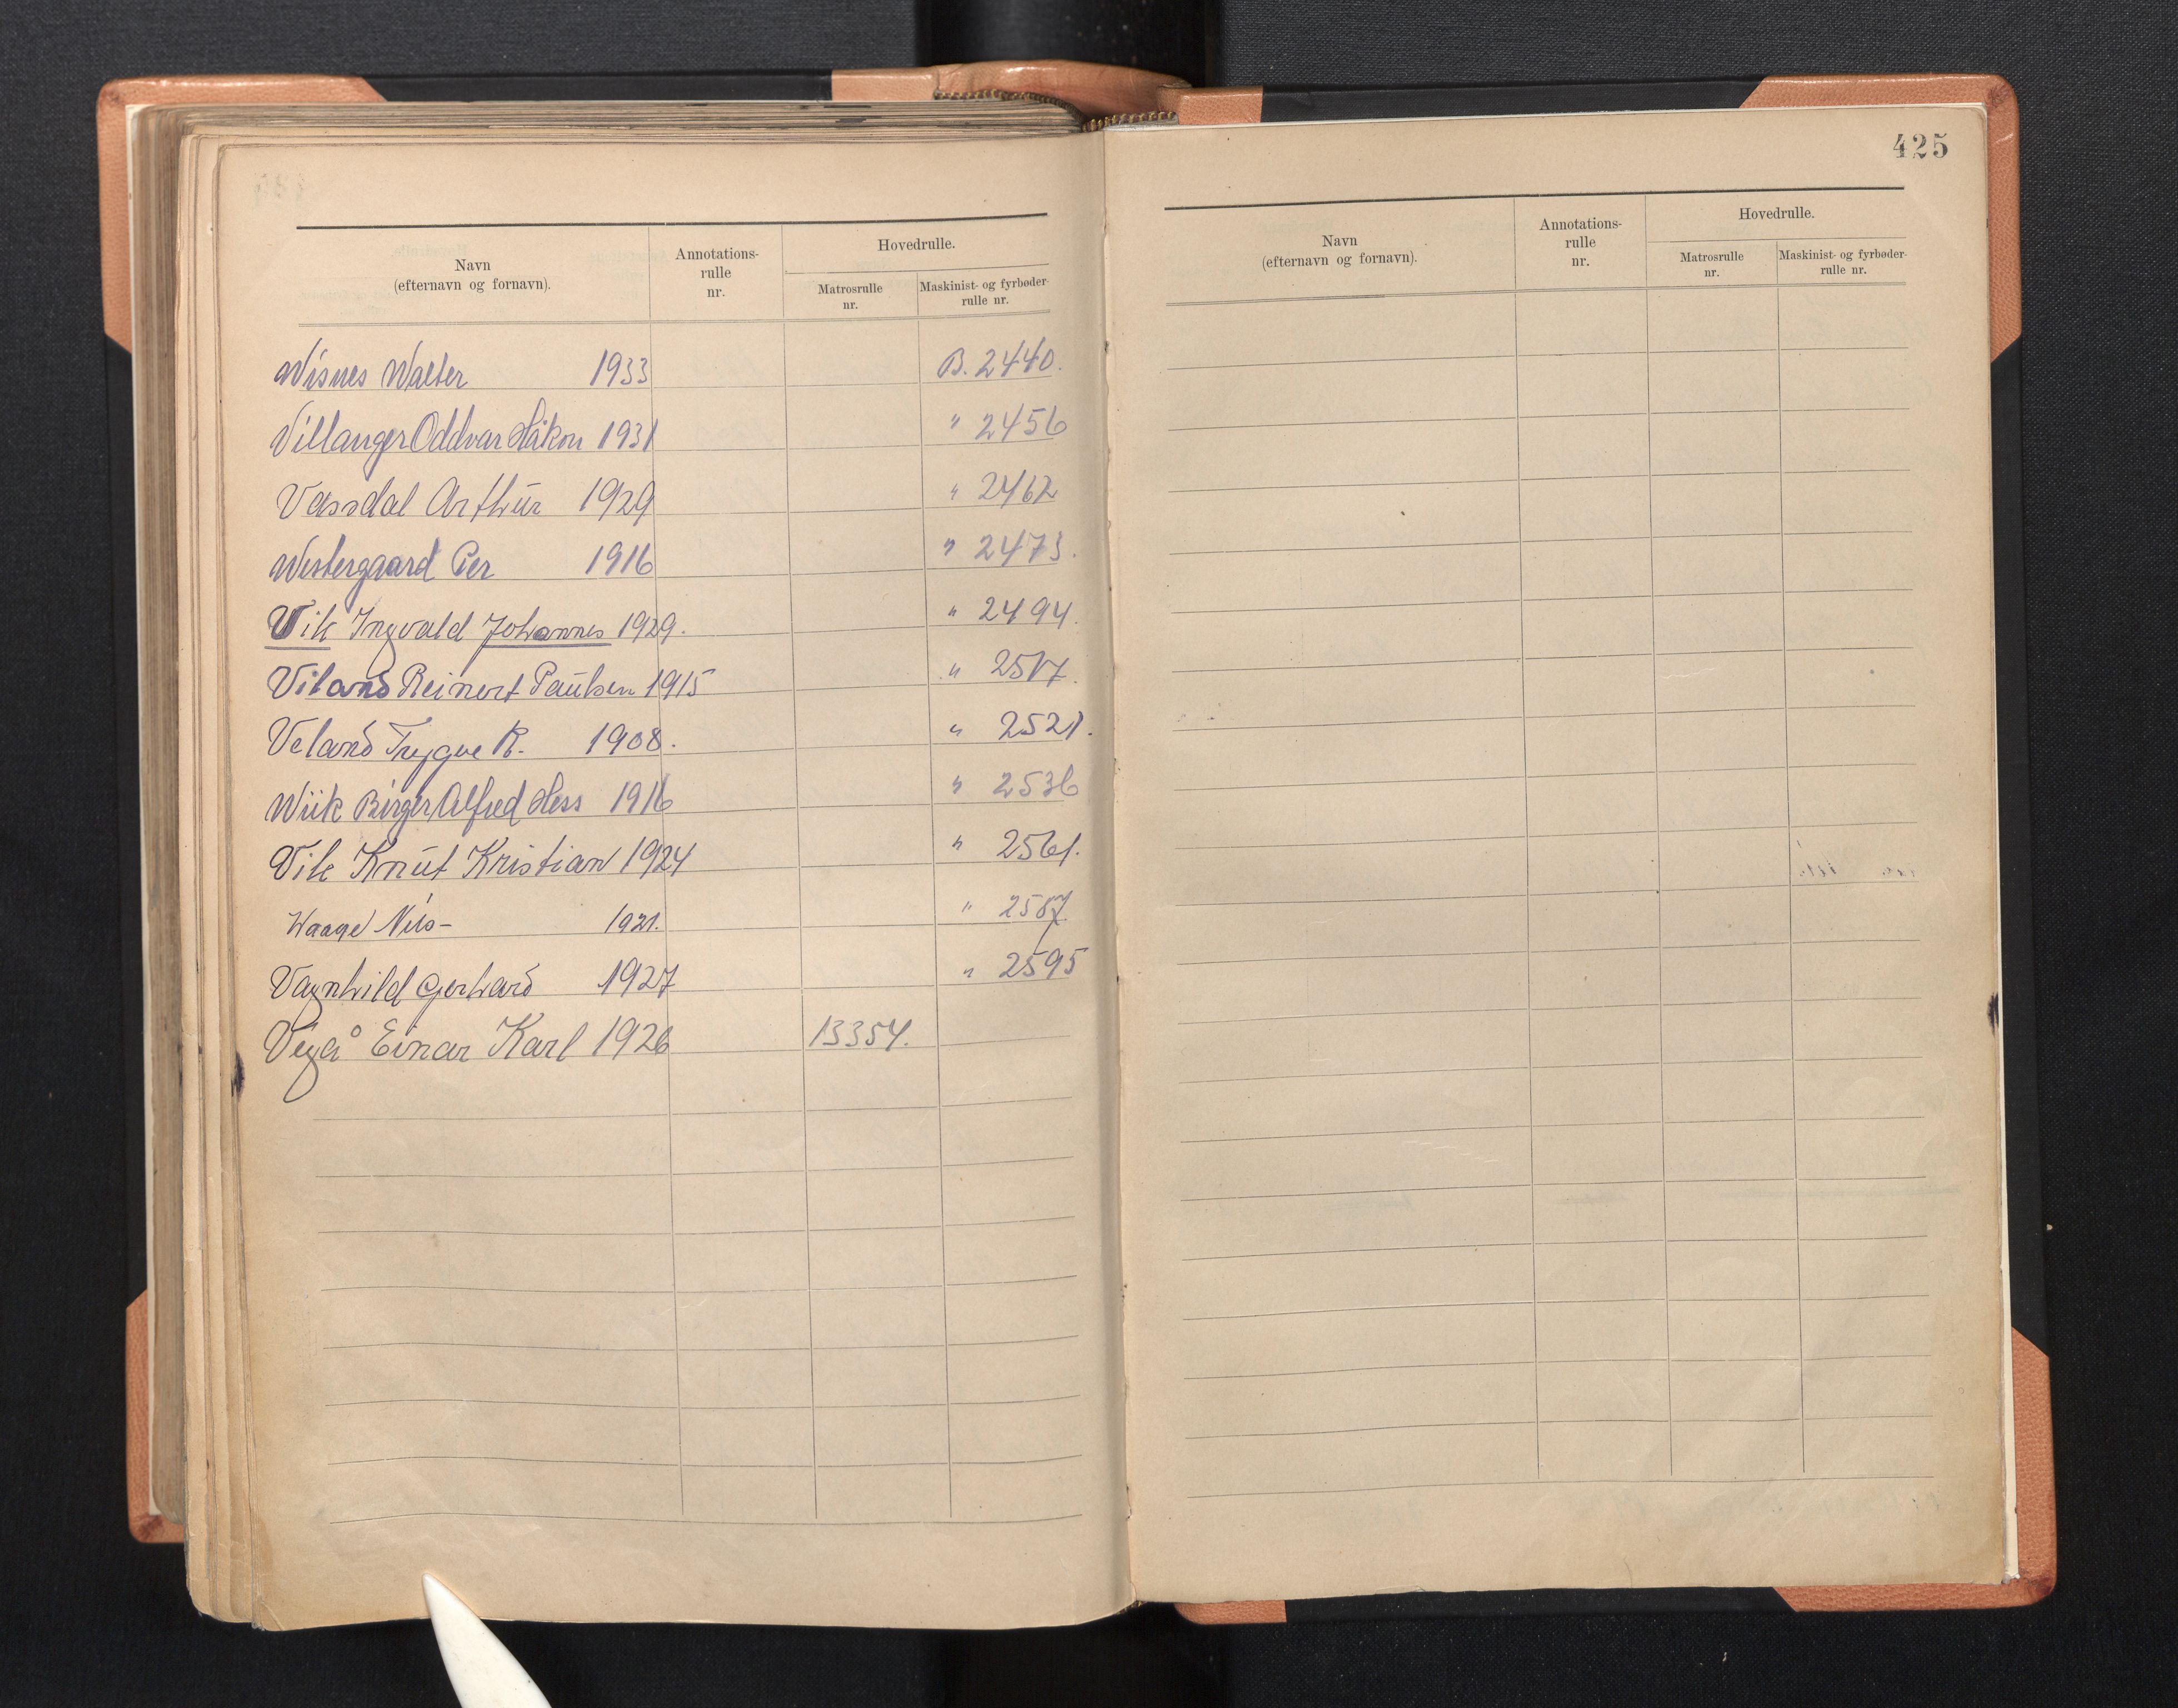 Navn
(efternavn og fornavn).
Annotations-
rulle
nr.
Hovedrulle.
Matrosrulle
nr.
Maskinist- og fyrbøder-
rulle nr.
Wisnes Walter 1933 B. 2440.
Villanger Oddvar Håkon 1931 " 2456
Vassdal Arthur 1929 " 2462
Westergaard Per 1916 " 2473.
Vik Ingvald Johannes 1929. " 2494.
Viland Reinert Paulsen 1915 " 2517.
Veland Trygve R. 1908. " 2521.
Wiik Birger Alfred Hess 1916 " 2536
Vik Knut Kristian 1924 " 2561.
Waage Nils - 1921. " 2587
Vagnhild Gerhard 1927 " 2595
Vegå Einar Karl 1926 13354.
425
Navn
(efternavn og fornavn).
Annotations-
rulle
nr.
Hovedrulle.
Matrosrulle
nr.
Maskinist- og fyrbøder-
rulle nr.